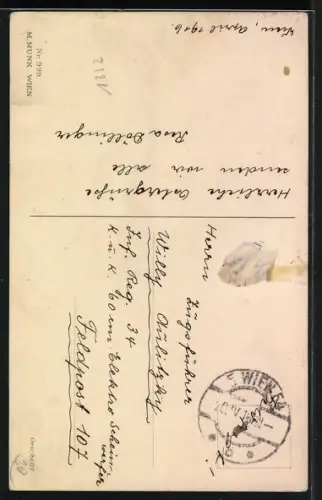 Wien, April 1916.
Herzliche Ostergrüße
senden wir alle
Resa Döllinger
Nr. 999
M. MUNK WIEN
2131
Herrn
Zugsführer
Willy Aulitzky
Inf. Reg. 34
k. u. k. 60 cm Elektro Schein-
werfer
Feldpost 107
WIEN 54
Geschützt